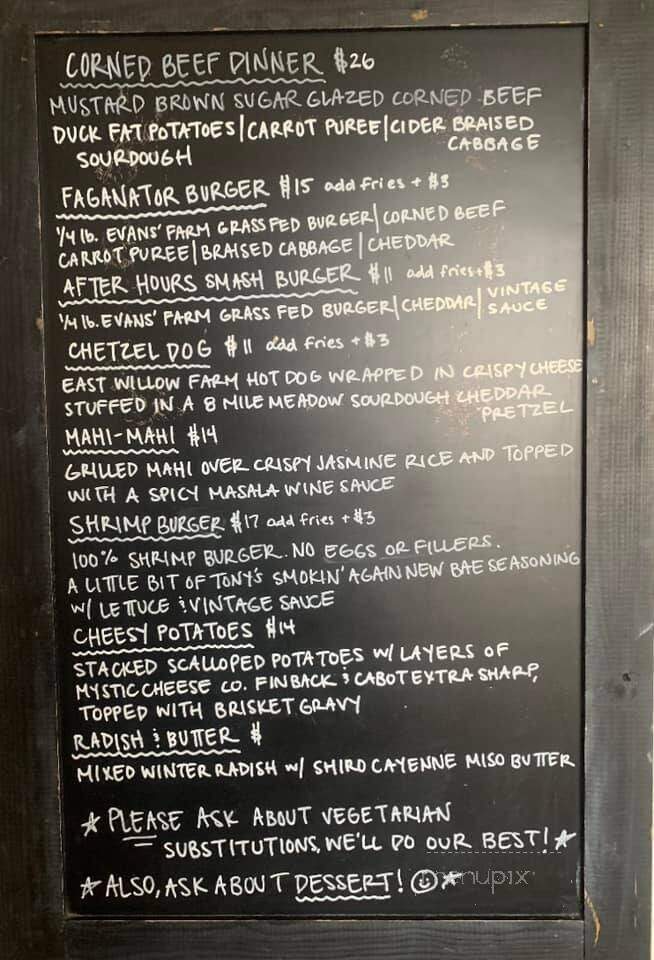 CORNED BEEF DINNER $26
MUSTARD BROWN SUGAR GLAZED CORNED BEEF
DUCK FAT POTATOES | CARROT PUREE | CIDER BRAISED
SOURDOUGH CABBAGE
FAGANATOR BURGER $15 add fries + $3
1/4 lb. EVANS' FARM GRASS FED BURGER | CORNED BEEF
CARROT PUREE | BRAISED CABBAGE | CHEDDAR
AFTER HOURS SMASH BURGER $11 add fries + $3
1/4 lb. EVANS' FARM GRASS FED BURGER | CHEDDAR | VINTAGE
SAUCE
CHETZEL DOG $11 add fries + $3
EAST WILLOW FARM HOT DOG WRAPPED IN CRISPY CHEESE
STUFFED IN A 8 MILE MEADOW SOURDOUGH CHEDDAR
PRETZEL
MAHI-MAHI $14
GRILLED MAHI OVER CRISPY JASMINE RICE AND TOPPED
WITH A SPICY MASALA WINE SAUCE
SHRIMP BURGER $17 add fries + $3
100% SHRIMP BURGER. NO EGGS OR FILLERS.
A LITTLE BIT OF TONY'S SMOKIN' AGAIN NEW BAE SEASONING
W/ LETTUCE & VINTAGE SAUCE
CHEESY POTATOES $14
STACKED SCALLOPED POTATOES W/ LAYERS OF
MYSTIC CHEESE CO. FINBACK & CABOT EXTRA SHARP,
TOPPED WITH BRISKET GRAVY
RADISH & BUTTER $
MIXED WINTER RADISH W/ SHIRO CAYENNE MISO BUTTER
★ PLEASE ASK ABOUT VEGETARIAN
SUBSTITUTIONS, WE'LL DO OUR BEST! ★
★ ALSO, ASK ABOUT DESSERT! ☺ ★
menupix